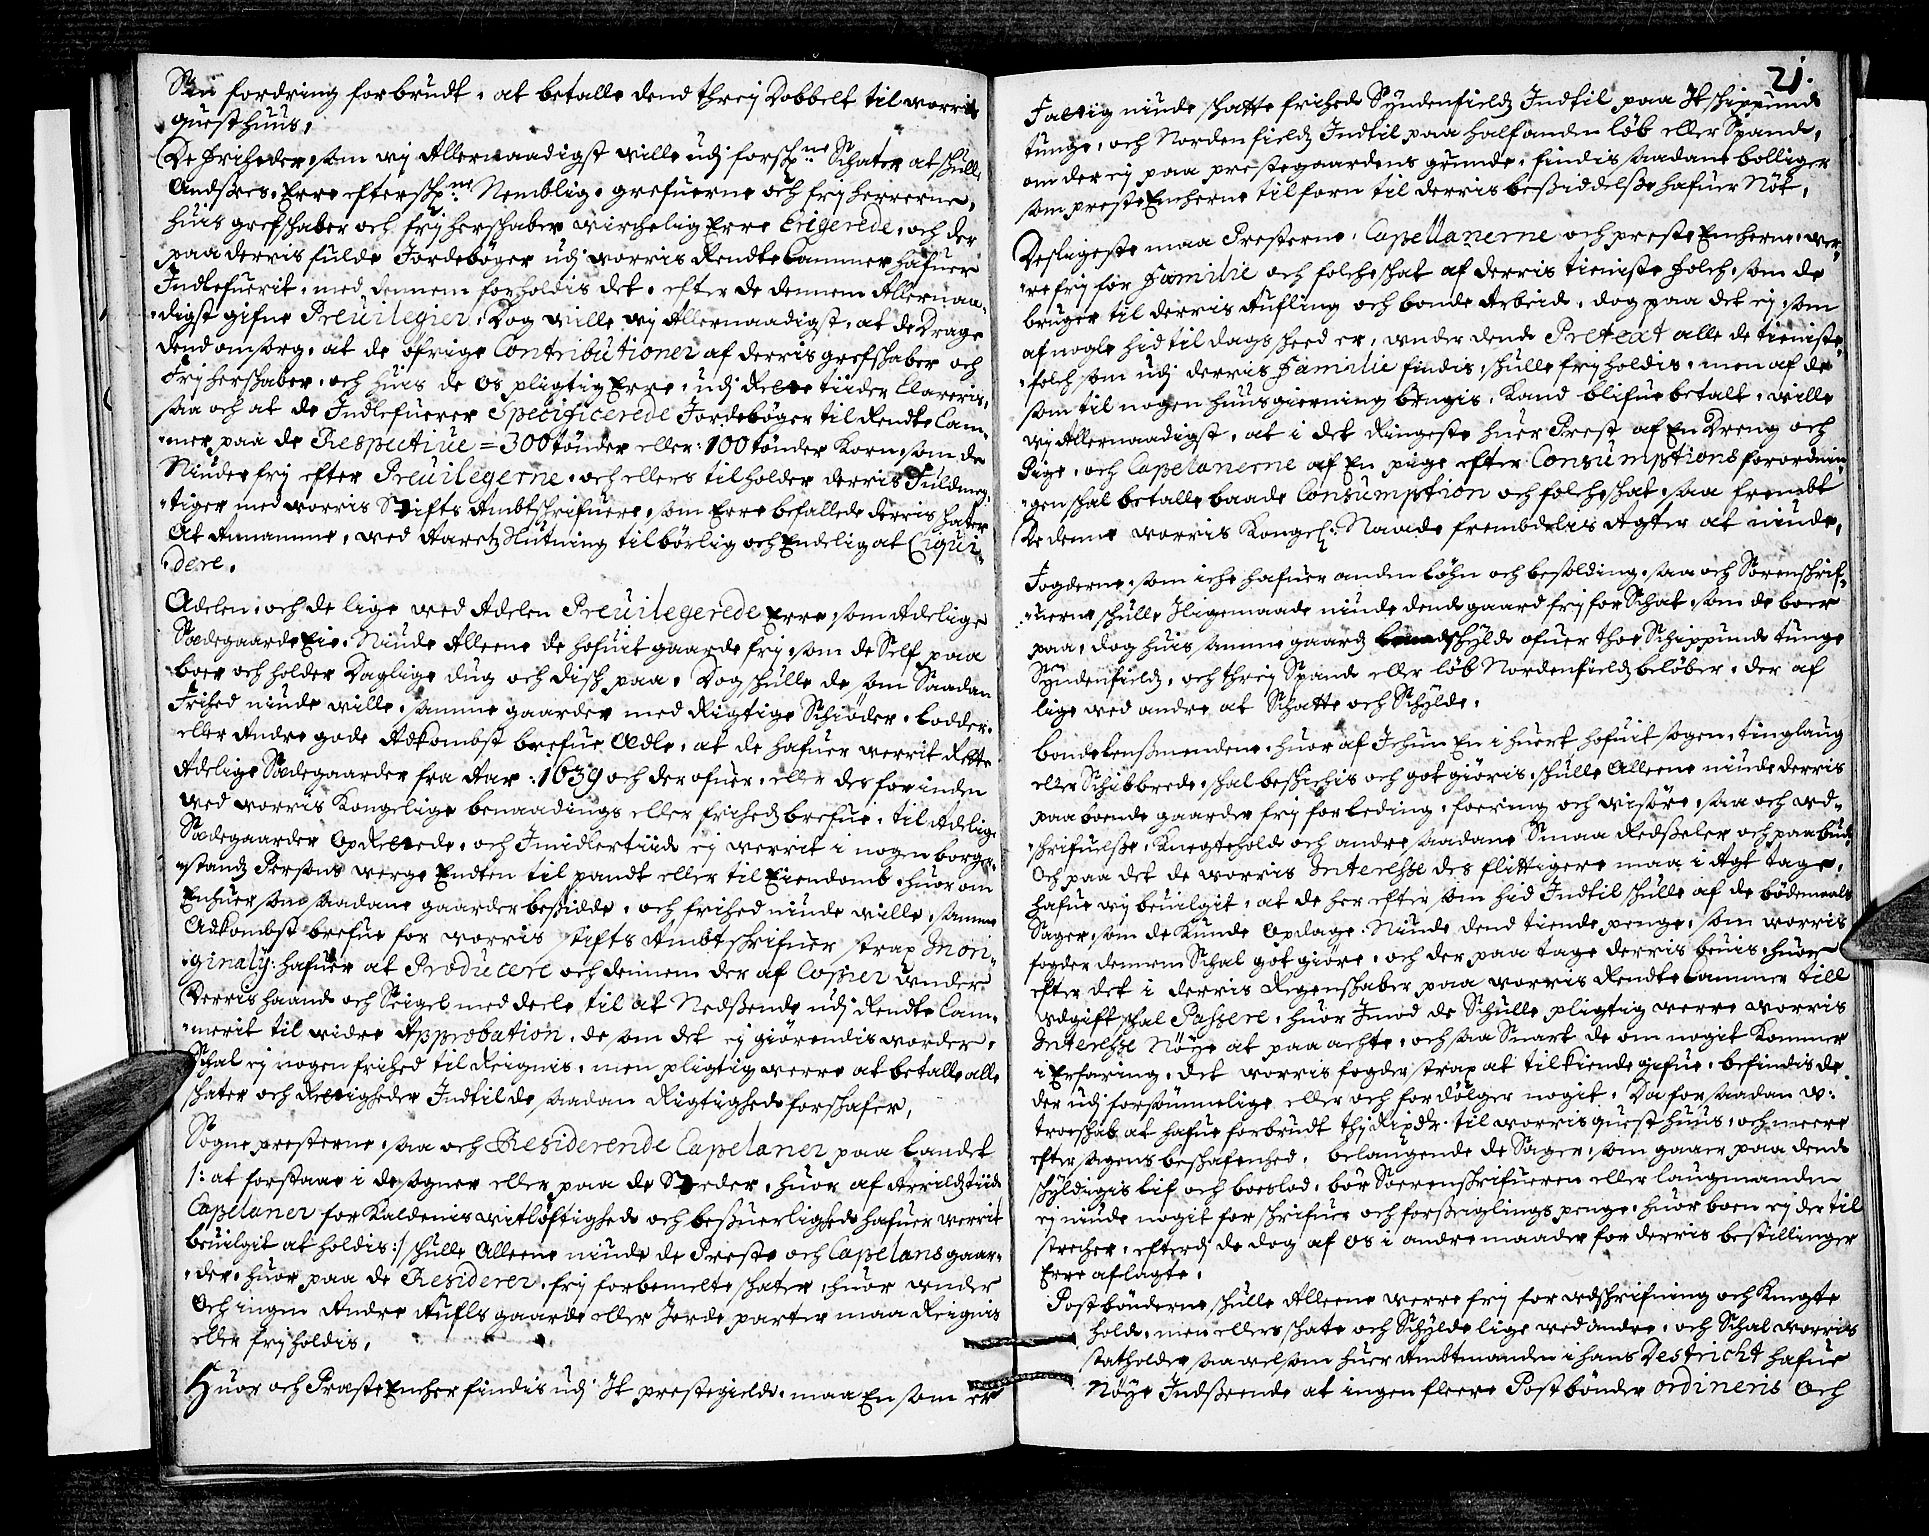 Sin fordring forbrudt, at betalle dend threj Dobbelt til worris
questhuus,
De friheder, som wj Allernaadigst wille udj forschne Schater at schulle
Andsees, Erre efterschne Nemblig, grefuerne och frijherrerne,
huis grefschaber och frijherschaber wirchelig Erre Erigerede, och der
paa derris fulde Jordebøger udj worris Rendte Cammer hafuer
Indlefuerit, med dennem forholdis det, efter de dennem Allernaa„
„digst gifne Preuilegier, Dog wille wj Allernaadigst, at de Drage
dend omsorg, at de øfrige Contributioner af derris grefschaber och
Frijherschaber, och huis de os pligtig Erre, udj Rette tiider Clareris,
saa och at de Indlefuerer Specificerede Jordebøger til Rendte Cam„
„mer paa de Respectiue = 300 tønder eller: 100 tønder Korn, som de
Niuder frij efter Preuilegerne, och ellers tilholder derris Fuldmeg„
„tiger med worris Stifts Ambtschrifuere, som Erre befallede derris schater
At Annamme, wed Aaretz Slutning tilbørlig och Endelig at Liqui„
„dere.
Adelen, och de lige wed Adelen Preuilegerede Erre, som Adelige
Sædegaarde Eie, Niude Alleene de hofuit gaarde frij, som de Self paa
boer och holder Daglige dug och disch paa, Dog schulle de som Saadan
Frihed niude wille, samme gaarder med Rigtige Schiøder, Lodder,
eller Andre gode Adkombst brefue Ædle, at de hafuer werrit Rette
Adelige Sædegaarder fra Aar: 1639 och der ofuer, eller des forinden
wed worris Kongelige benaadings eller friheds brefue, til Adelige
Sædegaarder OpRettede, och Imidlertiid ej werrit i nogen borger„
„standtz Persons werge Endten til pandt eller til Eiendomb, huor om
Enhuer som saadane gaarder besidde, och frihed niude wille, samme
Adkombst brefue for worris Stifts Ambtschrifuer strax Inori„
„ginalj hafuer at Producere och dennem der af Copier under
Derris haand och Seigel med deele, til at Nedsende udj Rendte Cam„
„merit til widre Approbation, de som det ej giørendis worder,
Schal ej nogen frihed til Reignis, men pligtig werre at betalle alle
schater och Rettigheder Indtil de saadan Rigtighed forschafer,
Sogne presterne, saa och Residerende Capelaner paa Landet
/: at forstaae i de sogner eller paa de Steder, huor af Arrildtz tiid
Capelaner for Kaldenis witløftighed och besuerlighed hafuer werrit
beuilgit at holdis :/ schulle Alleene niude de Preste och Capelans gaar„
„der, huor paa de Residerer, frij forbemelte schater, huor under
Och ingen Andre Aufls gaarde eller Jorde parter maa Reignis
eller frijholdis,
Huor och Præste Encher findis udj It prestegield, maa En som er
21.
Fattig niude schatte frihed Syndenfieldz Indtil paa It schippund
tunge, och Nordenfieldz Indtil paa halfanden løb eller Spand,
om der ej paa prestegaardens grunde, findis saadane bolliger
som preste Encherne tilforn til derris besiddelse hafuer Nøt,
Desligeste maa Presterne, Capellanerne och preste Encherne, wer„
„re frij for Familie och folche schat af derris tieniste folch, som de
bruger til derris Aufling och bonde Arbeid, dog paa det ej, som
af nogle hid til dags scheed er, under dend Pretext alle de tieniste„
„folch som udj derris Familie findis, schulle frij holdis, men af de
som til nogen huusgierning brugis, Kand blifue betalt, wille
wj Allernaadigst, at i det Ringeste huer Prest af En Dreng och
Pige, och Capelanerne af En pige efter Consumptions forordnin„
„gen schal betalle baade Consumption och folcheschat, saa frembt
De denne worris Kongel: Naade frembdelis Agter at niude,
Fogderne, som iche hafuer anden løhn och besolding, saa och Sorenschrif„
„uerne schulle Iligemaade niude dend gaard frij for Schat, som de boer
paa, dog huis samme gaardz schyld ofuer thoe Schippund tunge
Syndenfieldz, och threj Spand eller løb Nordenfieldz beløber, der af
lige wed andre at Schatte och Schylde,
bonde Lensmendene, huor af Ichun En i huert hofuit sogen, tinglaug
eller Schibbrede, schal beschichis och got giøris, schulle Alleene niude derris
paaboende gaarder frij for leding, foering och wisøre, saa och ud„
„schrifuelse, Knegtehold och andre saadane Smaa Redseler och paabud,
Och paa det de worris Interesse des flittigere maa i Agt tage,
hafue wj beuilgit, at de her efter som hid Indtil schulle af de bødemaals
Sager, som de kunde Opdage, Niude dend tiende penge, som worris
fogder dennem Schal got giøre, och der paa tage derris beuis, huor
efter det i derris Regenschaber paa worris Rendte Cammer till
udgift schal Passere, huor Imod de Schulle pligtig werre worris
Interesse Nøye at paa achte, och saa Snart de om nogit Kommer
i Erfaring, det worris fogder strax at tilkiende gifue, befindis de
der udj forsømmelige eller och fordølger nogit, Da for saadan u„
troeschab at hafue forbrudt thj Rixdr. til worris questhuus, och meere
efter sagens beschafenhed, belangende de Sager, som gaar paa dend
schyldigis lif och boeslod, bør Soerenschrifueren eller laugmanden
ej niude nogit for schrifuer och forseiglings penge, huor boen ej der til
strecher, efterdj de dog af os i andre maader for derris bestillinger
Erre aflagte,
Postbønderne schulle Alleene werre frij for udschrifning och Knegte
hold, men ellers schate och Schylde lige wed andre, och Schal worris
statholder saa wel som huer Ambtmanden i hans Destricht hafue
Nøye Indseende at ingen fleere Postbønder ordineris Och